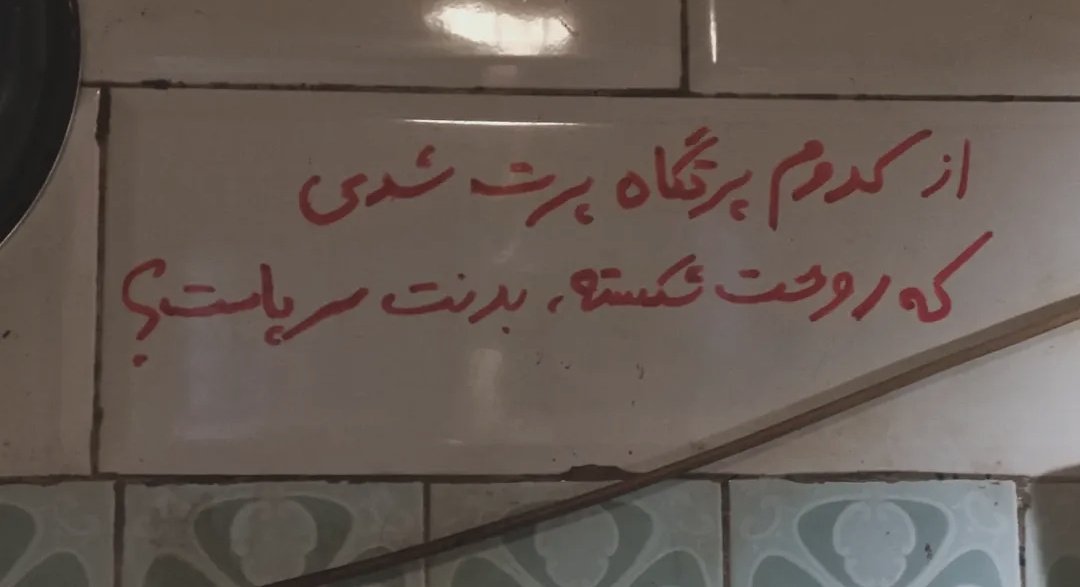 از کدوم پرتگاه پرت شدی
که روحت شکسته، بدنت سرپاست؟